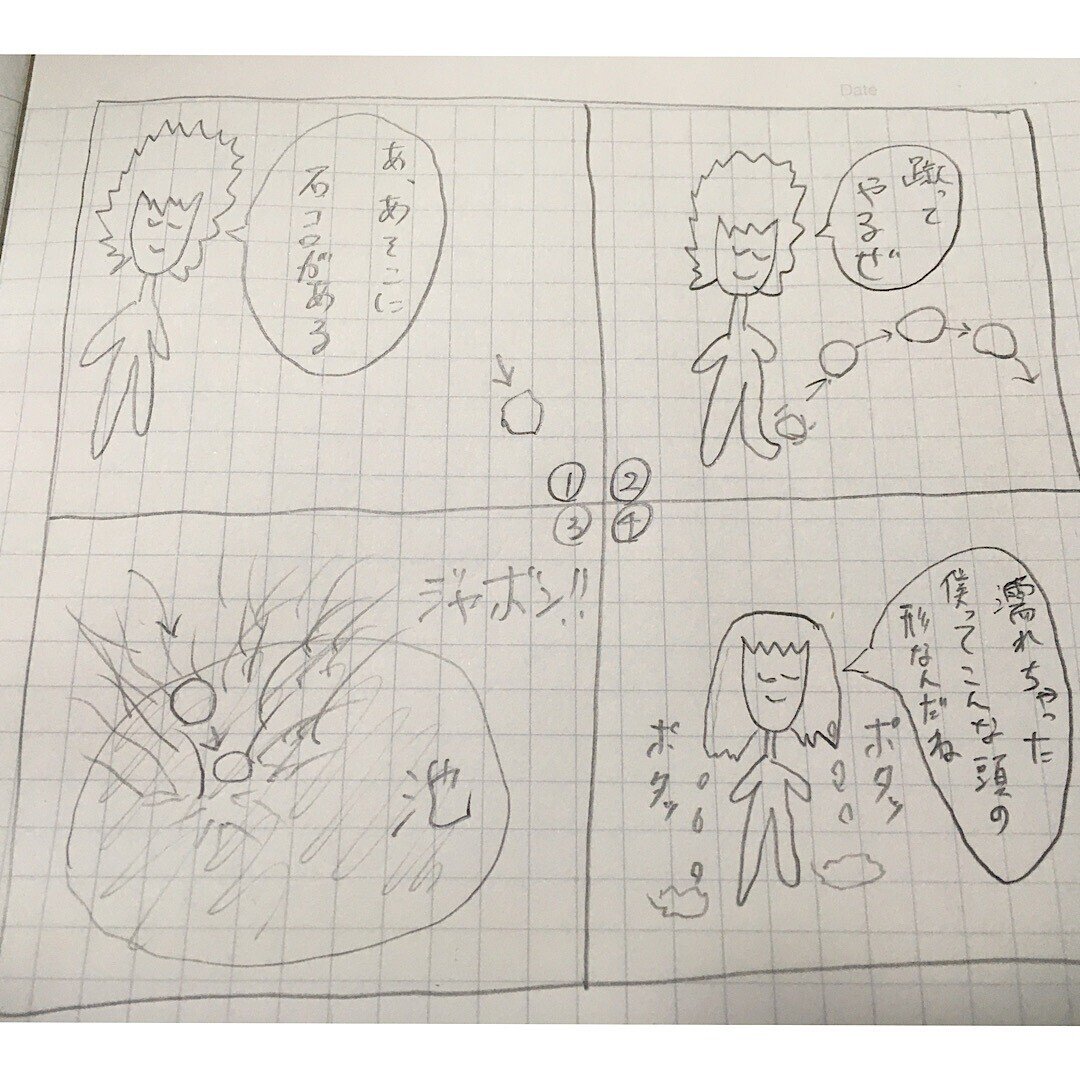 Date
①
あ、あそこに
石コロがある
②
蹴って
やるぜ
③
ジャボン!!
池
④
濡れちゃった
僕ってこんな頭の
形なんだね
ポタッ
ポタッ